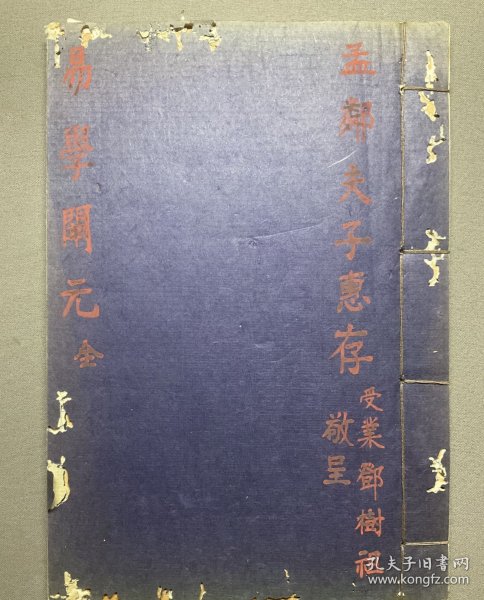 孟鄰夫子惠存
受業鄧樹祖
敬呈
易學闡元 全
孔夫子旧书网
www.kongfz.com